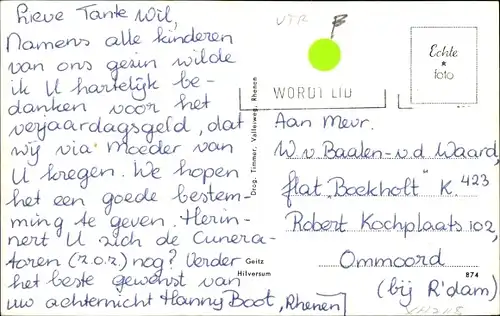 Lieve Tante Wil,
Namens alle kinderen
van ons gezin wilde
ik U hartelijk be-
danken voor het
verjaardagsgeld, dat
wij via Moeder van
U kregen. We hopen
het een goede bestem-
ming te geven. Herin-
nert U zich de Cunera-
toren (z.o.z.) nog? Verder
het beste gewenst van
uw achternicht Hanny Boot, Rhenen
Drog. Timmer, Valleiweg, Rhenen
Geitz
Hilversum
WORDT LID
Echte
*
foto
Aan Mevr.
W v Baalen-v.d Waard,
flat "Boekholt" K. 423
Robert Kochplaats 102,
Ommoord
(bij R'dam)
874